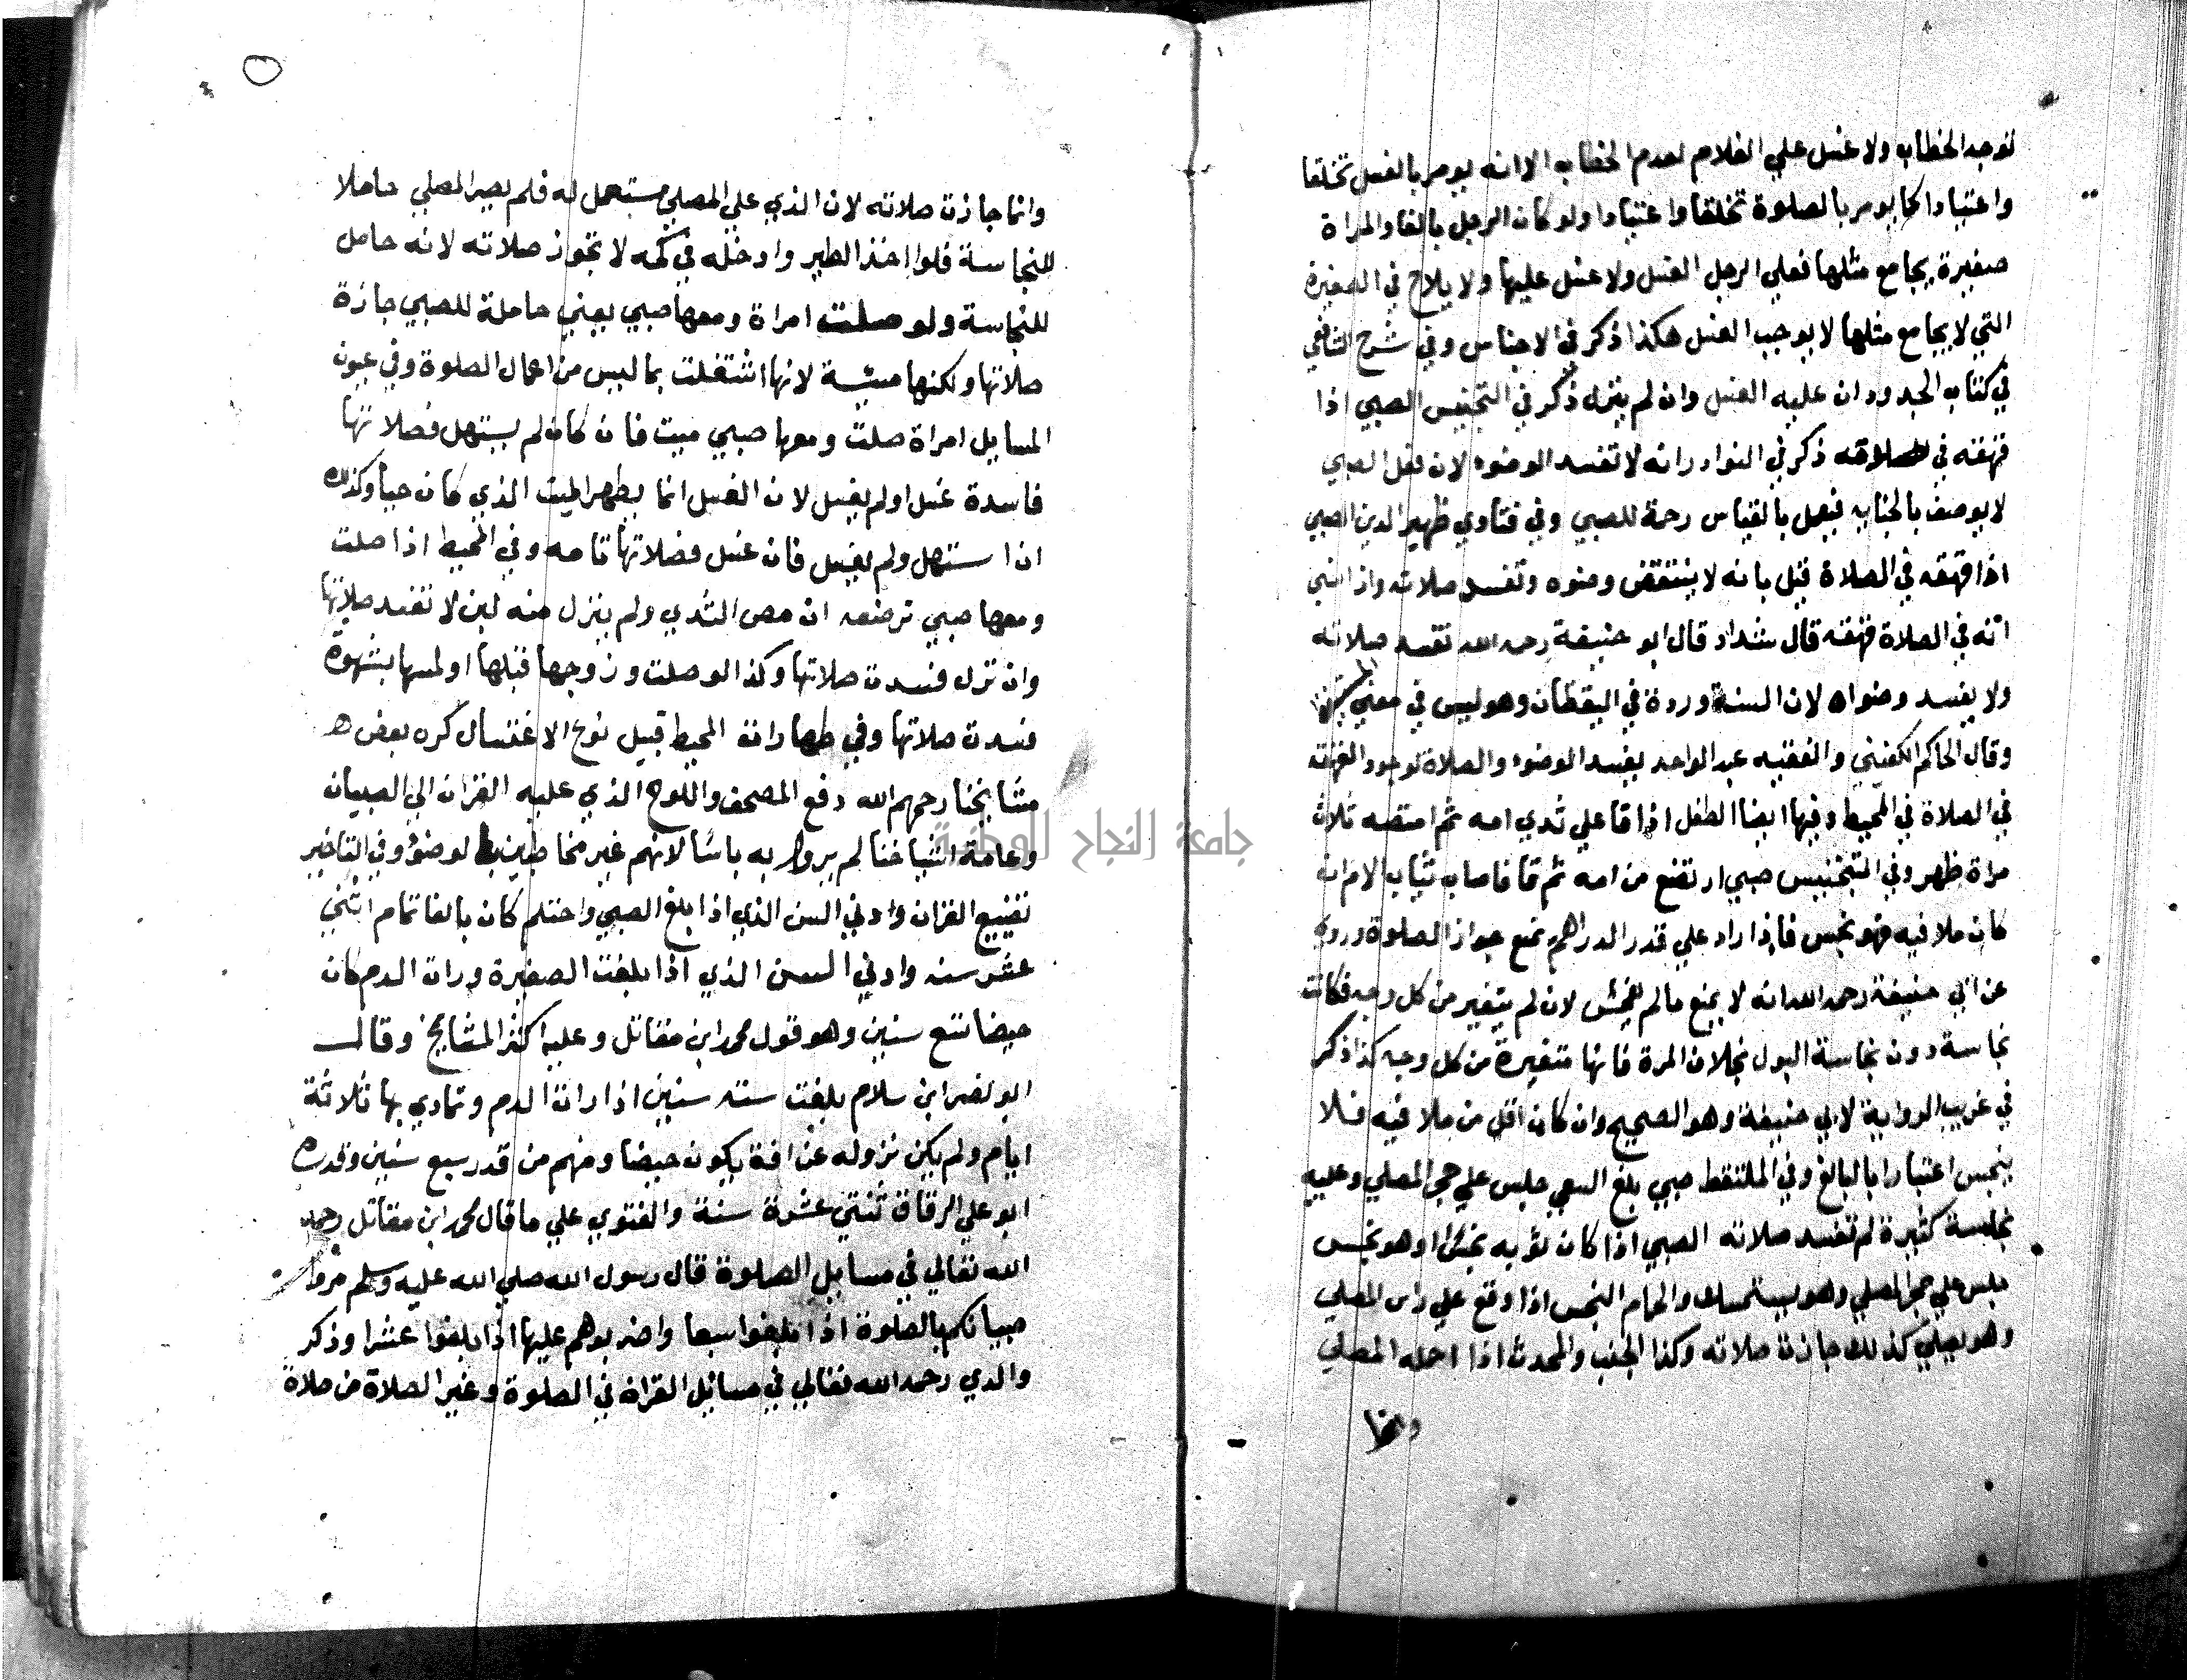 لتوجه الخطاب ولا غسل علي الغلام لعدم الخطاب الا انه يومر بالغسل تخلقا
واعتيادا كما يومر بالصلوة تخلقا واعتيادا ولو كان الرجل بالغا والمراة
صغيرة يجامع مثلها فعلي الرجل الغسل ولا غسل عليها ولايلاج في الصغيرة
التي لا يجامع مثلها لا يوجب الغسل هكذا ذكر في الاجناس وفي شرح الشافعي
في كتاب الحدود ان عليه الغسل وان لم ينزل ذكر في التجنيس الصبي اذا
قهقه في صلاته ذكر في النوادر انه لا تفسد الوضوء لان فعل الصبي
لا يوصف بالجنايه فيعمل بالقياس رحمة للصبي وفي فتاوي ظهير الدين الصبي
اذا قهقه في الصلاة قيل بانه لا ينتقض وضوه وتفسد صلاته واذا نسي
انه في الصلاة قهقه قال شداد قال ابو حنيفة رحمه الله تفسد صلاته
ولا يفسد وضواه لان السنة وردة في اليقظان وهو ليس في معني
وقال الحاكم الكفيني والفقيه عبد الواحد يفسد الوضوء والصلاة لوجود القهقه
في الصلاة في المحيط وفيها ايضا الطفل اذا قا علي ثدي امه ثم امتصه ثلاث
مراة طهر وفي التجنيس صبي ارتضع من امه ثم قا فاصاب ثياب الام ان
كان ملا فيه فهو نجس فاذا زاد علي قدر الدراهم تمنع جواز الصلوة وروي
عن ابي حنيفة رحمه الله انه لا يمنع مالم يفحش لان لم يتغير من كل وجه فكانت
نجاسة دون نجاسة البول بخلاف المرة فانها متغيرة من كل وجه كذا ذكر
في غريب الرواية لابي حنيفة وهو الصحيح وان كان اقل من ملا فيه فلا
ينجس اعتبارا بالبالغ وفي الملتقط صبي بلغ السعي جلس علي حجر المصلي وعليه
نجاسة كثيرة لم تفسد صلاته الصبي اذا كان ثوبه نجسا او هو نجس
جلس علي حجر المصلي وهو يستمسك والحمام النجس اذا وقع علي راس المصلي
وهو يصلي كذلك جازت صلاته وكذا الجنب والمحدث اذا احمله المصلي
وانما
وانما جازت صلاته لان الذي علي المصلي مستعمل له فلم يصير المصلي حاملا
للنجاسة فلو اخذ الطير وادخله في كمه لا تجوز صلاته لانه حامل
للنجاسة ولو صلت امراة ومعها صبي يعني حاملة للصبي جازة
صلاتها ولكنها مسيئة لانها اشتغلت بما ليس من اعمال الصلوة وفي عيون
المسايل امراة صلت ومعها صبي ميت فان كان لم يستهل فصلاتها
فاسدة غسل اولم يغسل لان الغسل انما يطهر الميت الذي كان حيا وكذلك
اذا ستهل ولم يغسل فان غسل فصلاتها تامه وفي المحيط اذا صلت
ومعها صبي ترضعه ان مص الثدي ولم ينزل منه لبن لا تفسد صلاتها
وان نزل فسدت صلاتها وكذا لو صلت وزوجها قبلها او لمسها بشهوة
فسدت صلاتها وفي طهارات المحيط قبيل نوع الاغتسال كره بعض
مشايخنا رحمهم الله دفع المصحف واللوح الذي عليه القران الي الصبيان
وعامة اشياخنا لم يروا به باسا لانهم غير مخاطبين بالوضوء وفي التاخير
تضييع القران وادني السن الذي اذا بلغ الصبي واحتلم كان بالغا تمام اثني
عشر سنه وادني السن الذي اذا بلغت الصغيرة ورات الدم كان
حيضا تسع سنين وهو قول محمد ابن مقاتل وعليه اكثر المشايخ وقال
ابو نصر ابن سلام بلغت سته سنين اذا رات الدم وتمادي بها ثلاثة
ايام ولم يكن نزوله عن افة يكون حيضا ومنهم من قدر سبع سنين وقدره
ابو علي الرقاق ثنتي عشرة سنة والفتوي علي ما قال محمد ابن مقاتل رحمه
الله تعالي في مسايل الصلوة قال رسول الله صلي الله عليه وسلم مروا
صبيانكم بالصلوة اذا بلغوا سبعا واضربوهم عليها اذا بلغوا عشرا وذكر
والدي رحمه الله تعالي في مسائل القراة في الصلوة وغير الصلاة من صلاة
جامعة النجاح الوطنية